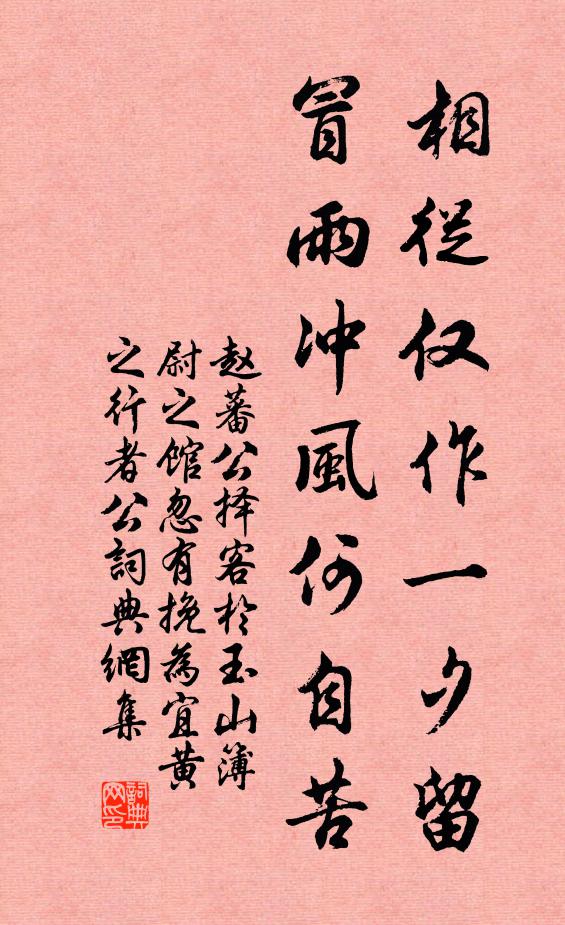 相從仅作一夕留
冒雨冲風何自苦
赵蕃公择客於玉山簿
尉之馆忽有挽為宜黄
之行者公詞典網集
詞典网印